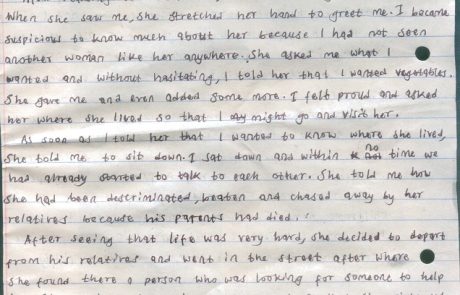 When she saw me, she stretched her hand to greet me. I became
suspicious to know much about her because I had not seen
another woman like her anywhere. She asked me what I
wanted and without hasitating, I told her that I wanted vegetables.
She gave me and even added some more. I felt proud and asked
her where she lived so that I may might go and visit her.
As soon as I told her that I wanted to know where she lived,
she told me to sit down. I sat down and within no time we
had already started to talk to each other. She told me how
she had been descriminated, beaten and chased away by her
relatives because his parents had died.
After seeing that life was very hard, she decided to depart
from his relatives and went in the street after where
she found there a person who was looking for someone to help